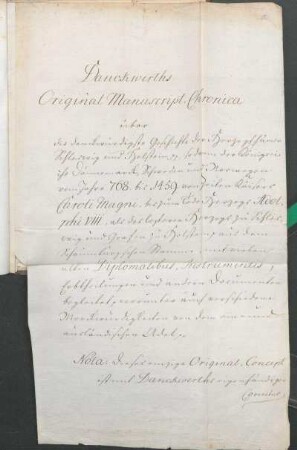 Danckwerths
Original Manuscript. Chronica
über
die denckwürdigste Geschichte der Herzogthümer
Schleswig und Holstein pp. sodann der Königrei-
che Dännemark, Schweden und Norwegen
vom Jahre 768. bis 1459. von Zeiten Kaisers
Caroli Magni, bis zum Tode Herzogs Adol-
phi VIII. als des letztern Herzogs zu Schles-
wig und Grafen zu Holstein aus dem
Schaumburgischen Stamm, mit
alten Diplomatibus, Instrumentis,
Erbtheilungen und andern Documenten
begleitet, worunter auch verschiedene
Merkwürdigkeiten von dem und
ausländischen Adel.
Nota. dieses einzige Original-Concept
ist mit Danckwerths eigenhändigen